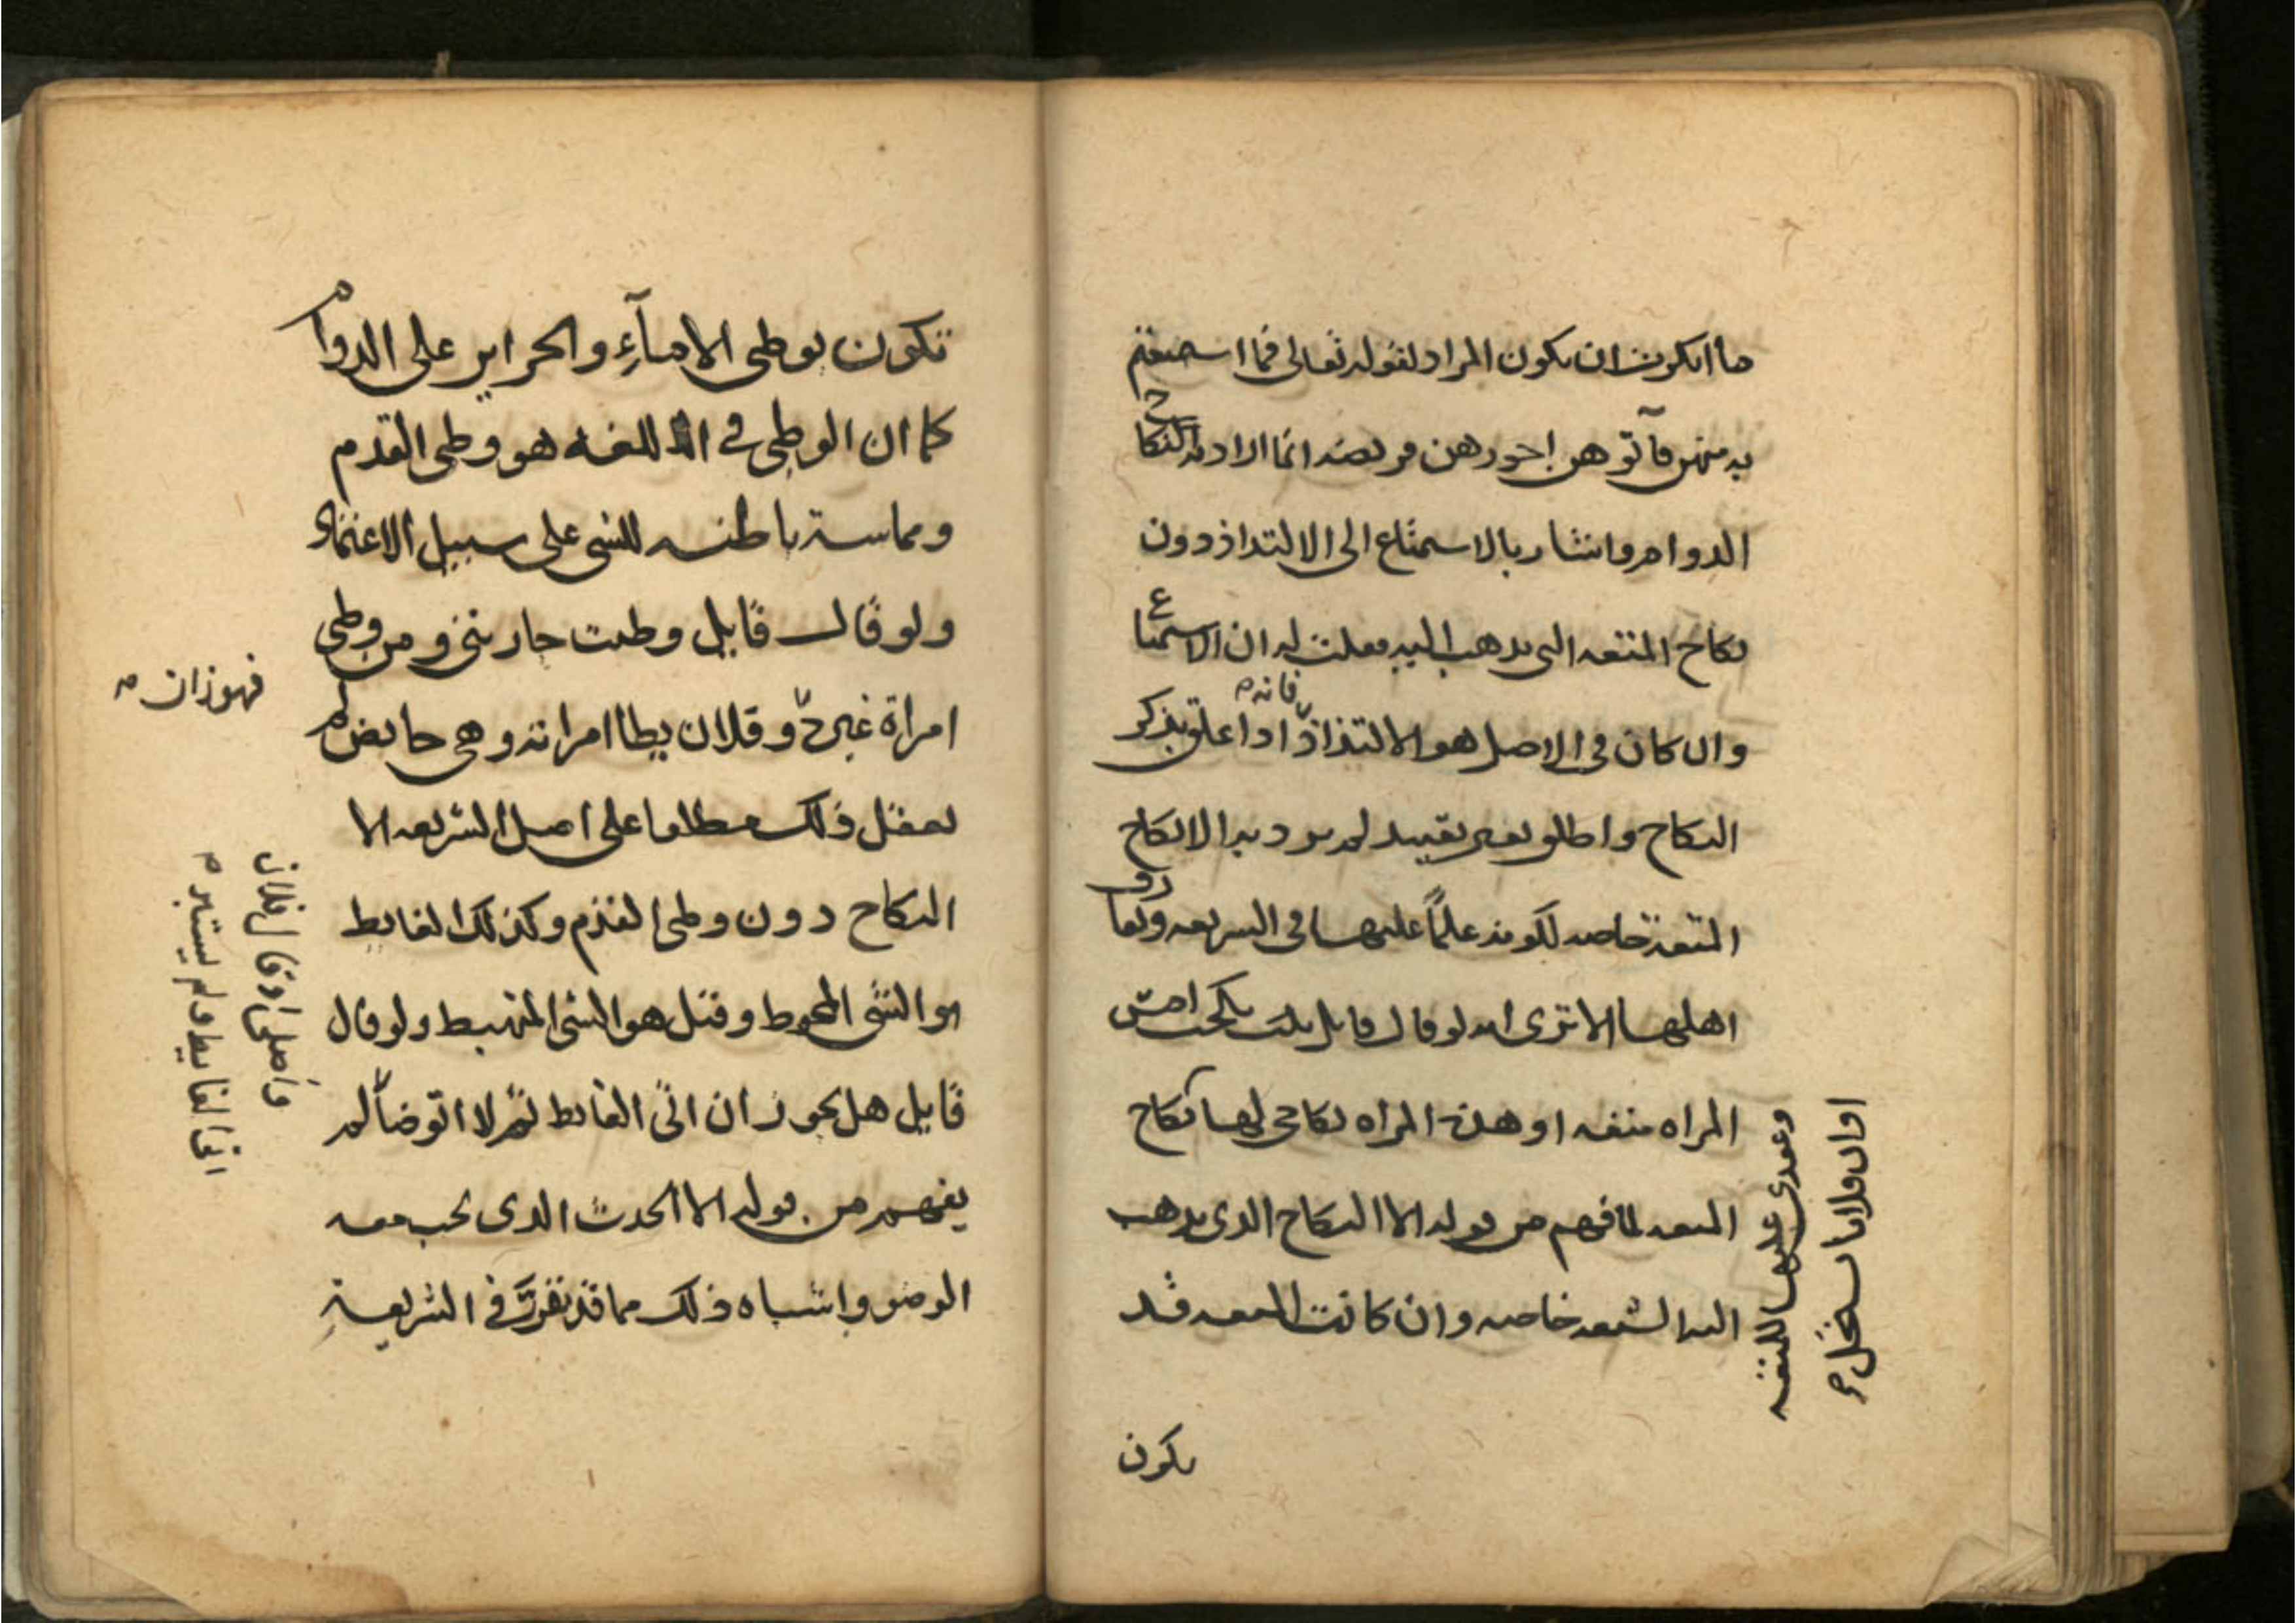 ما انكرت ان يكون المراد لقوله تعالى فما استمتعتم
به منهن فآتوهن اجورهن فريضه انما اراد به النكاح
الدوام واشار بالاستمتاع الى الالتذاذ دون
نكاح المتعه التى يذهب اليه فقلت له ان الاستمتاع
وان كان في الاصل هو الالتذاذ فانه اذا علق بذكر
النكاح واطلق بغير تقييد لم يرد به الا نكاح
المتعة خاصه لكونه علمًا عليها فى الشريعه وتعارف
اهلها الا ترى انه لو قال قايل نكحت امس
المراه متعه او هذه المراه نكاحى لها نكاح
وعقدى عليها للمتعه
او ان فلانا يستحل
المتعه لما فهم من قوله الا النكاح الذى يذهب
اليه الشيعه خاصه وان كانت المتعه قد
يكون
تكون بوطى الامآء والحراير على الدوام
كما ان الوطى في اللغه هو وطى القدم
ومماسة باطنه للشى على سبيل الاعتماد
ولو قال قايل وطئت جاريتى ومن وطى
امراة غيره
فهو زان
وفلان يطا امراته وهى حايض لم
يعقل ذلك مطلقا على اصل الشريعه الا
النكاح دون وطى القدم وكذلك الغايط
هو الشى المحوط وقيل هو الشى المنهبط ولو قال
قايل هل يجوز ان اتى الغايط ثم لا اتوضأ
واصلى او قال فلان
اتى الغايط ولم يستبر
لم
يفهم من قوله الا الحدث الذى يجب معه
الوضو واشباه ذلك مما قد تقرر في الشريعة